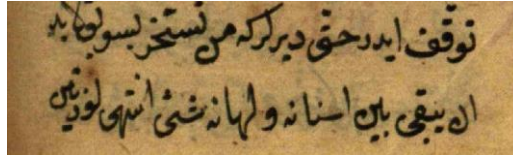 توقف ايدر حتى ديرلركه من تسحر بسويق لابد
ان يبقى بين اسنانه ولهاته شئ انتهى لوزيتين